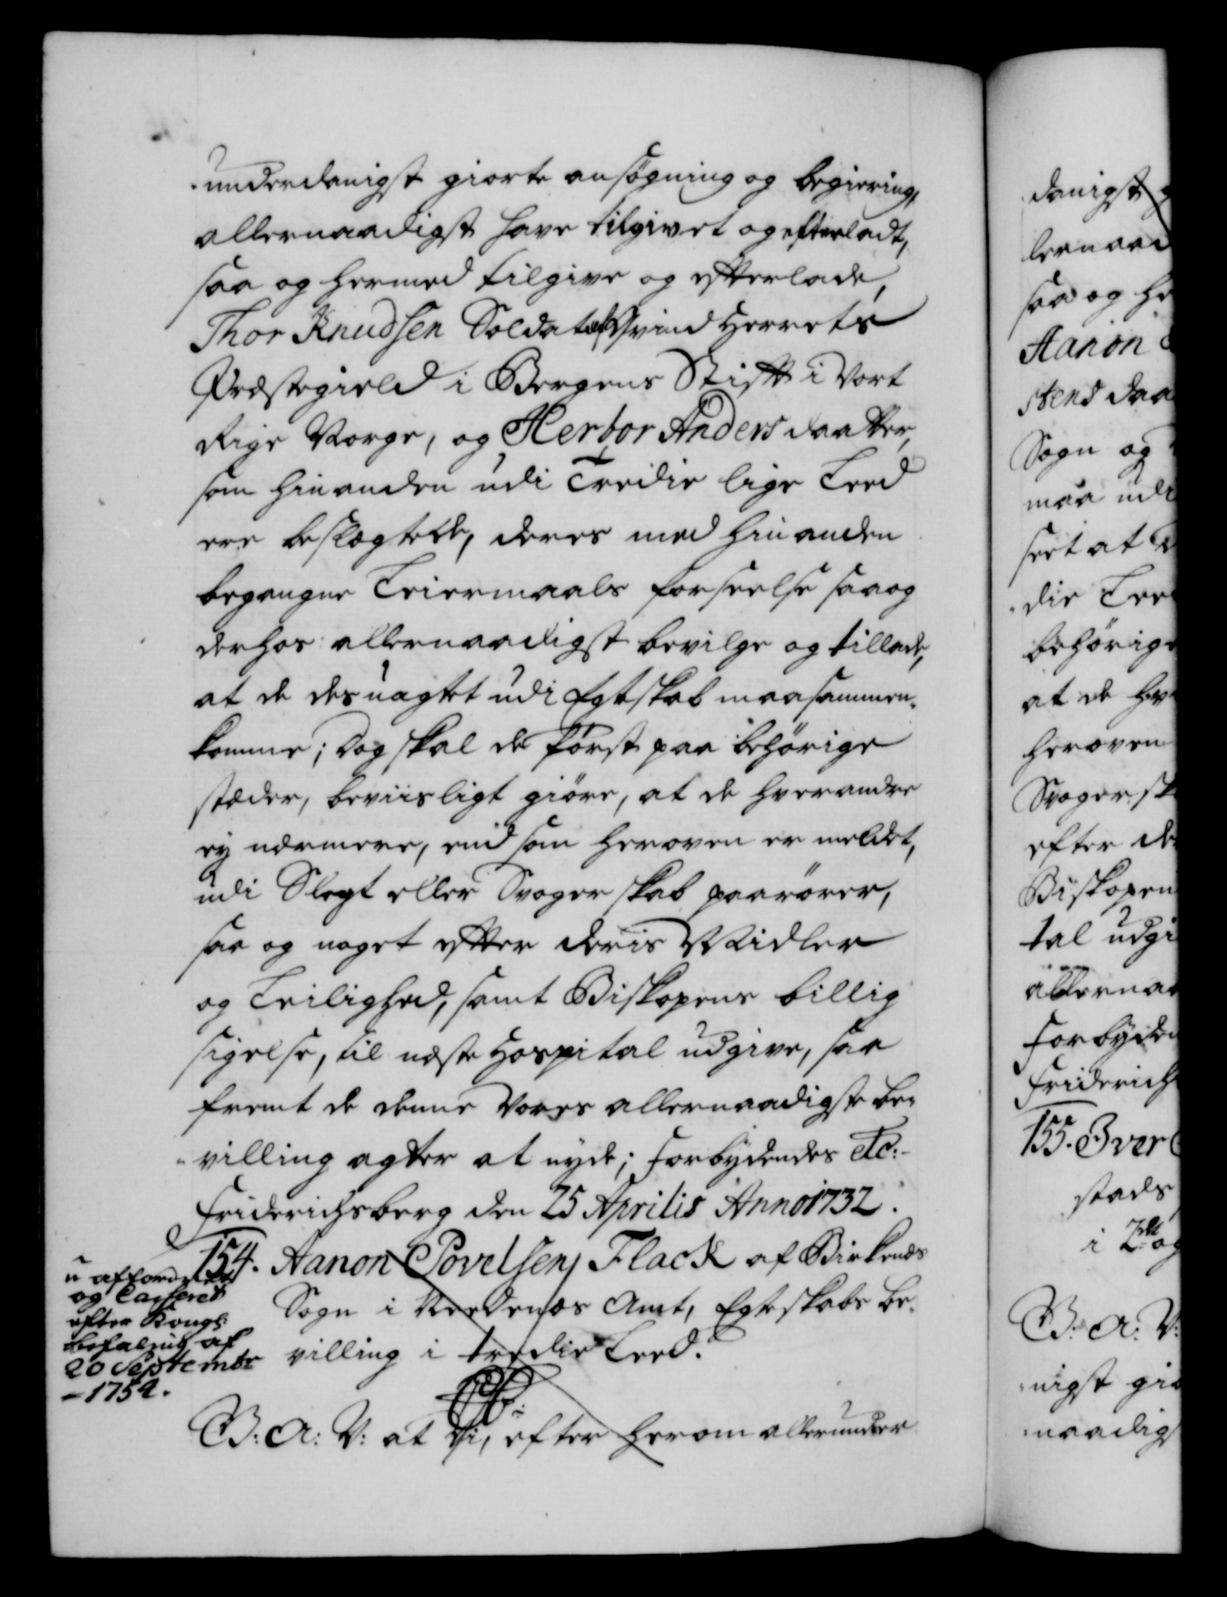 underdanigst giorte ansøgning og begiering,
allernaadigst have tilgivet og efterladt,
saa og hermed tilgive og efterlade,
Thor Knudsen Soldat af Qvind Herrets
Præstegield i Bergens Stift i Vort
Rige Norge, og Herbor Anders daatter,
som hinanden udi Tredie lige Leed
ere beslægtede, deres med hinanden
begangne Leiermaals forseelse saa og
derhos allernaadigst bevilge og tillade,
at de desuagtet udi Egteskab maa sammen-
komme; Dog skal de først paa behørige
stæder, beviisligt giøre, at de hverandre
ey nærmere, end som heroven er meldet,
udi Slegt eller Svogerskab paarører,
saa og noget efter deris Midler
og Leilighed, samt Biskopens billig
sigelse, til næste Hospital udgive, saa
fremt de denne Vores allernaadigste be-
villing agter at nyde; Forbydendes Etc:
Friderichsberg den 25 Aprilis Anno 1732.
154. Aanon Povelsen Flack af Birkenæs
Sogn i Nædenæs Amt, Egteskabs be-
villing i tredie Leed.
u afford
og Casseret
efter Kongl:
befaling af
20 Septembr
1754.
G: A: V: at Vi, efter herom allerunder
danigst
lernaad
saa og he
Aanon
stens daa
Sogn og
maa udi
seet at
die Lee
behørige
at de hve
heroven
Svogersk
efter de
Biskopen
tal udgi
allernaa
Forbyden
Friderich
155. Iver
stads
i 2det og
G: A: V:
nigst gio
naadig